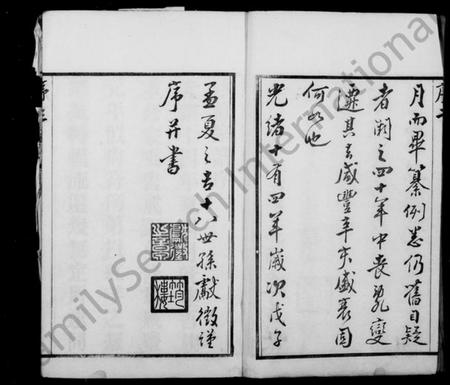 月而畢纂例悉仍舊目疑
者闕之四十年中喪亂變
遷其去咸豐辛亥盛衰固
何如也
光緒十有四年歲次戊子
孟夏之吉十八世孫獻徵謹
序并書
FamilySearch International